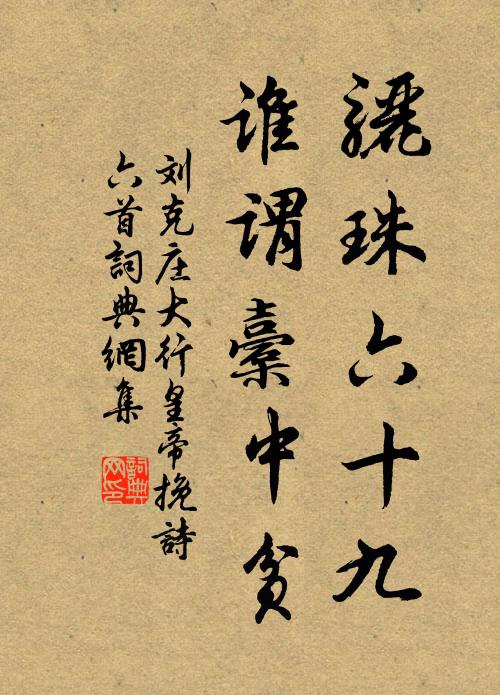 驪珠六十九
谁谓橐中贫
刘克庄大行皇帝挽詩
六首詞典網集
詞典网印